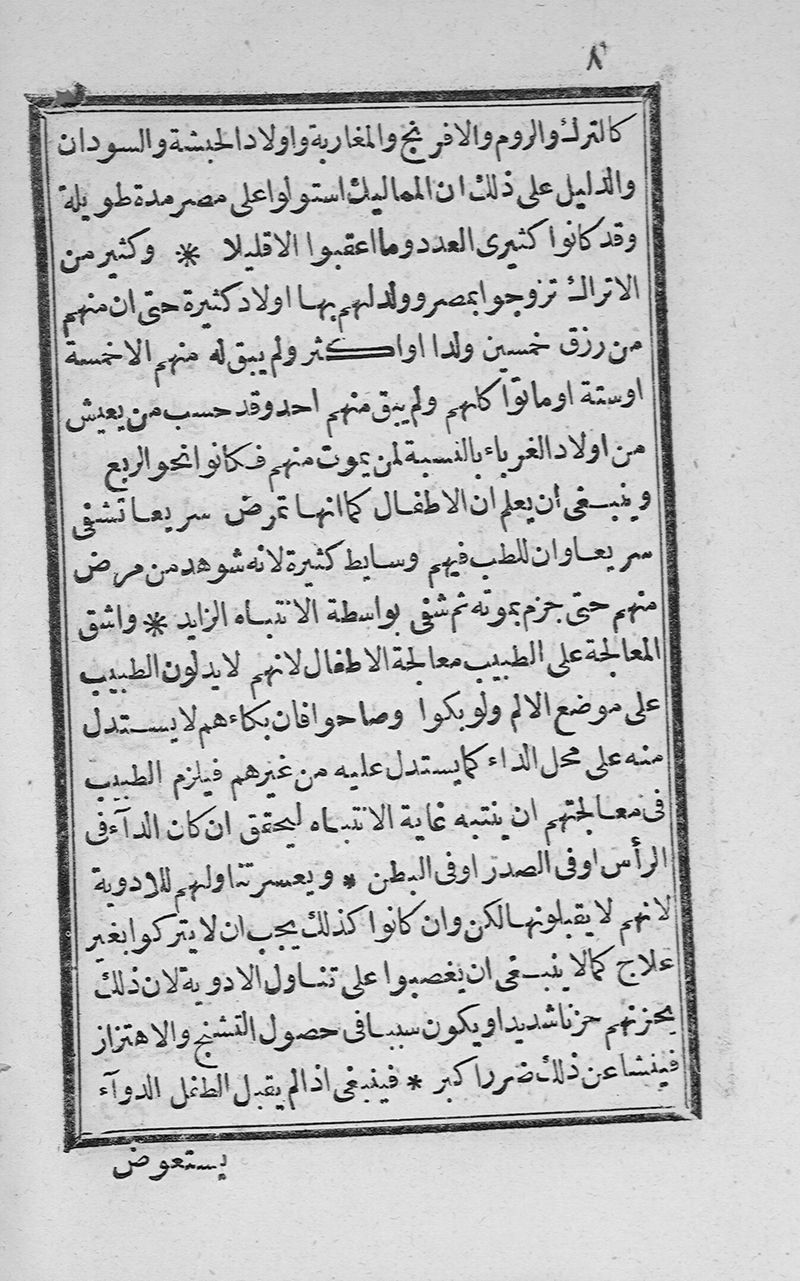 ٨
كالترك والروم والافرنج والمغاربة واولاد الحبشة والسودان
والدليل على ذلك ان المماليك استولوا على مصر مدة طويلة
وقد كانوا كثيرى العدد وما اعقبوا الاقليلا * وكثير من
الاتراك تزوجوا بمصر وولد لهم بها اولاد كثيرة حتى ان منهم
من رزق خمسين ولدا او اكثر ولم يبق له منهم الا خمسة
او ستة او ماتوا كلهم ولم يبق منهم احد وقد حسب من يعيش
من اولاد الغرباء بالنسبة لمن يموت منهم فكانوا نحو الربع
وينبغى أن يعلم ان الاطفال كما انها تمرض سريعا تشفى
سريعا وان للطب فيهم وسايط كثيرة لانه شوهد من مرض
منهم حتى جزم بموته ثم شفى بواسطة الانتباه الزايد * واشق
المعالجة على الطبيب معالجة الاطفال لانهم لا يدلون الطبيب
على موضع الالم ولو بكوا وصاحوا فان بكاءهم لا يستدل
منه على محل الداء كما يستدل عليه من غيرهم فيلزم الطبيب
فى معالجتهم ان ينتبه غاية الانتباه ليحقق ان كان الدآء فى
الرأس او فى الصدر او فى البطن * ويعسر تناولهم للادوية
لانهم لا يقبلونها لكن وان كانوا كذلك يجب ان لا يتركوا بغير
علاج كما لا ينبغى ان يغصبوا على تناول الادوية لان ذلك
يحزنهم حزنا شديدا ويكون سببا فى حصول التشنج والاهتزاز
فينشا عن ذلك ضررا كبر * فينبغى اذا لم يقبل الطفل الدوآء
يستعوض